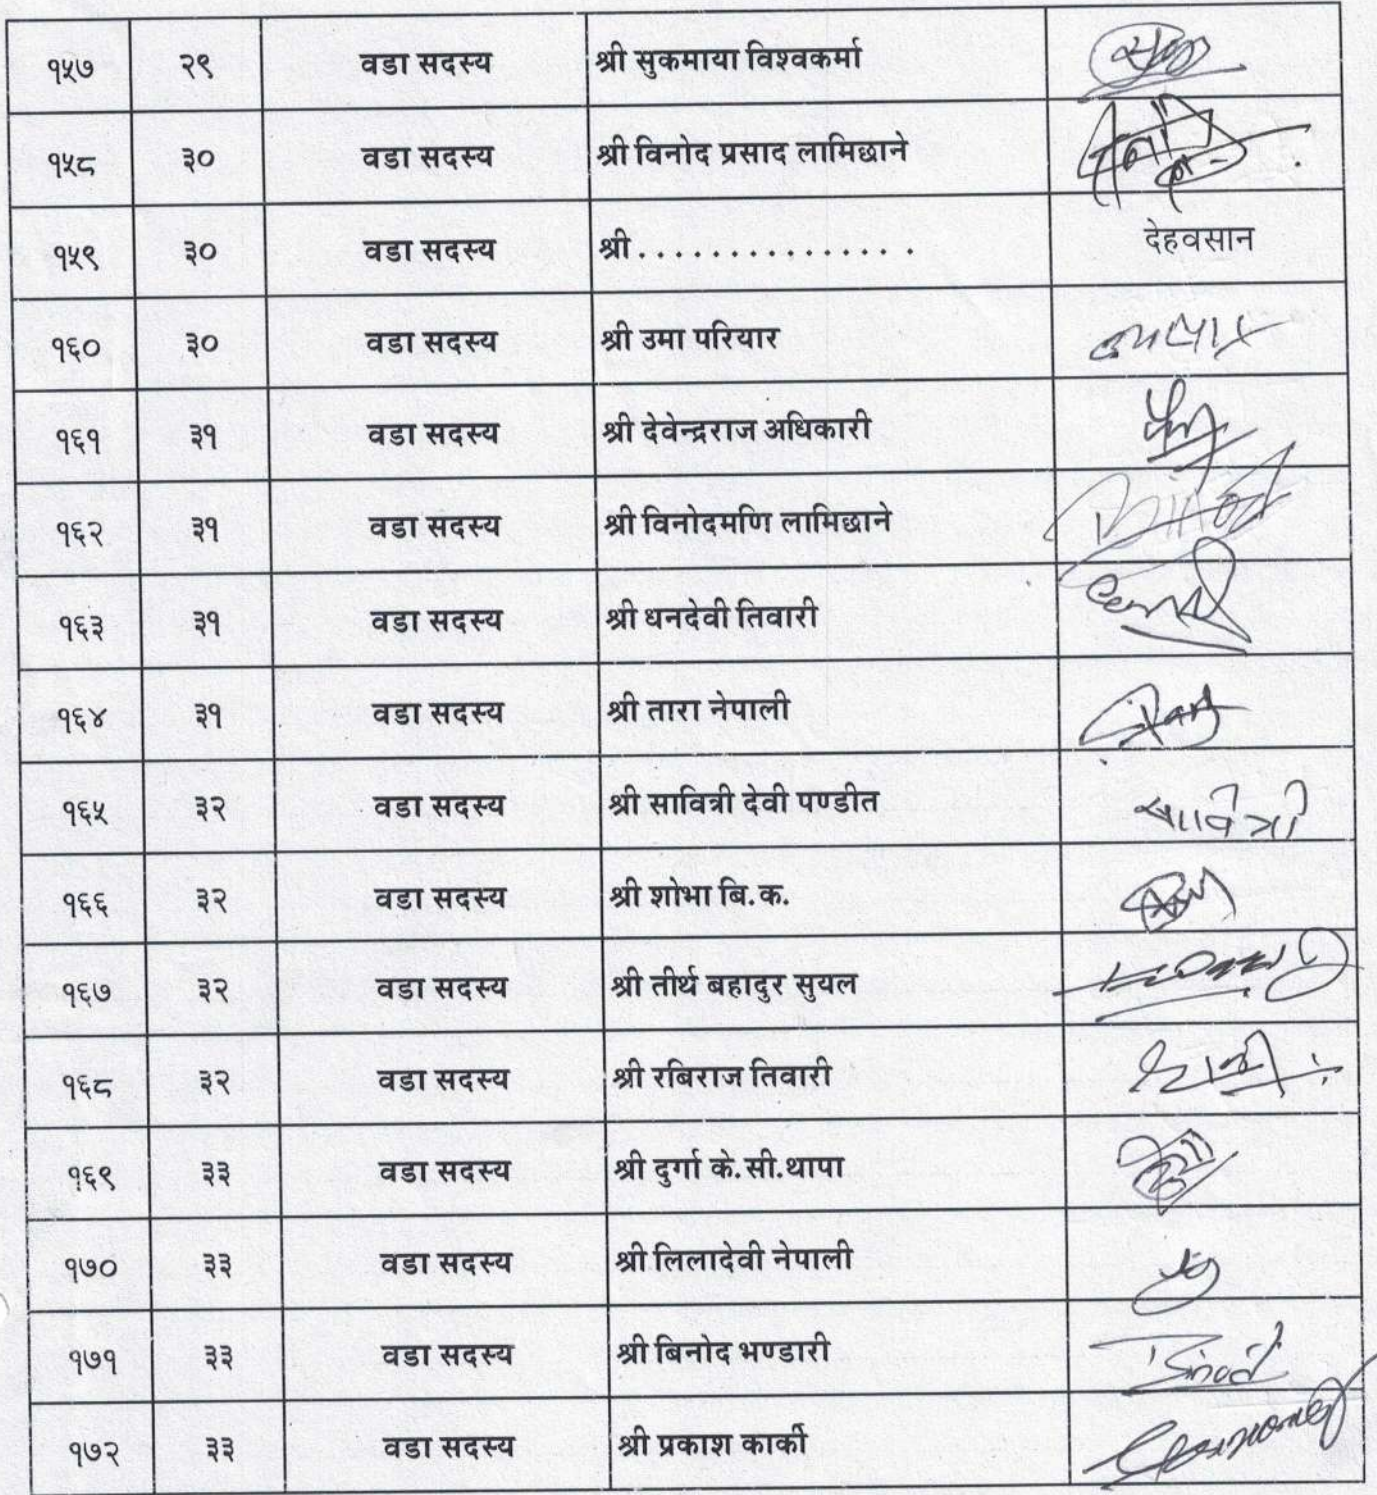 १५७ २९ वडा सदस्य श्री सुकमाया विश्वकर्मा
१५८ ३० वडा सदस्य श्री विनोद प्रसाद लामिछाने
१५९ ३० वडा सदस्य श्री . . . . . . . . . . . . . . . देहवसान
१६० ३० वडा सदस्य श्री उमा परियार
१६१ ३१ वडा सदस्य श्री देवेन्द्रराज अधिकारी
१६२ ३१ वडा सदस्य श्री विनोदमणि लामिछाने
१६३ ३१ वडा सदस्य श्री धनदेवी तिवारी
१६४ ३१ वडा सदस्य श्री तारा नेपाली
१६५ ३२ वडा सदस्य श्री सावित्री देवी पण्डीत सावित्री
१६६ ३२ वडा सदस्य श्री शोभा बि.क.
१६७ ३२ वडा सदस्य श्री तीर्थ बहादुर सुयल
१६८ ३२ वडा सदस्य श्री रबिराज तिवारी
१६९ ३३ वडा सदस्य श्री दुर्गा के.सी.थापा
१७० ३३ वडा सदस्य श्री लिलादेवी नेपाली
१७१ ३३ वडा सदस्य श्री बिनोद भण्डारी Binod
१७२ ३३ वडा सदस्य श्री प्रकाश कार्की